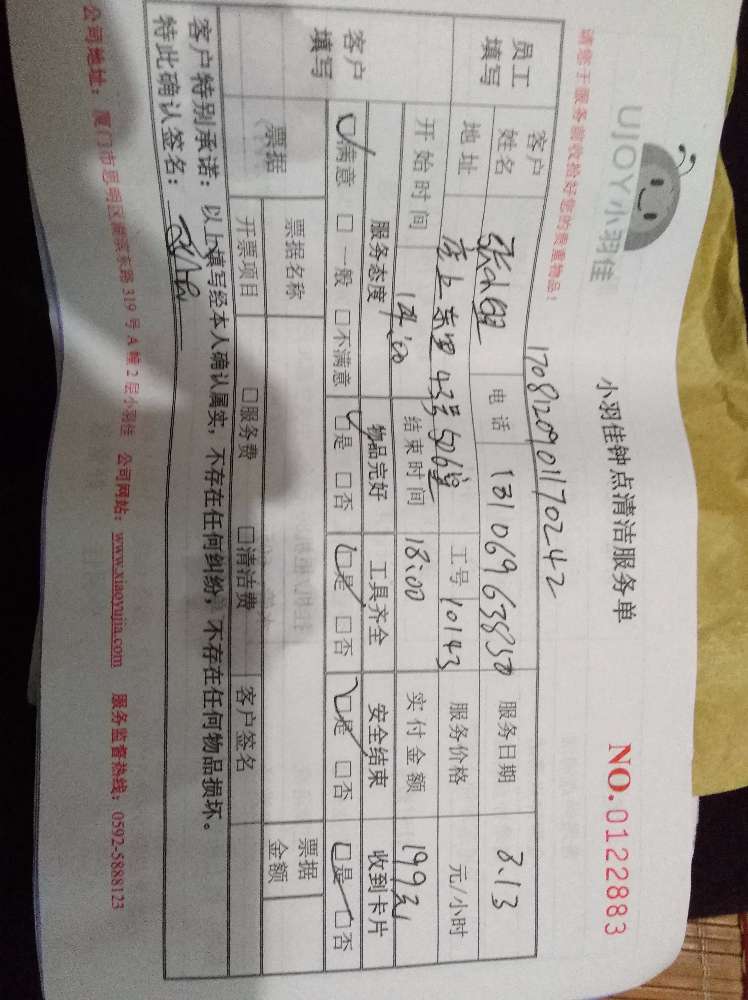 UJOY小羽佳
小羽佳钟点清洁服务单
NO.0122883
请您于服务前收拾好您的贵重物品!
1708120901170242
员工填写 客户姓名 张小姐 电话 13106963850 服务日期 3.13
地址 东里43号506室 工号 10143 服务价格 元/小时
开始时间 14:00 结束时间 18:00 实付金额 199元
客户填写 服务态度 物品完好 工具齐全 安全结束 收到卡片
□满意 □一般 □不满意 □是 □否 □是 □否 □是 □否 □是 □否
票据 票据名称 票据金额
开票项目 □服务费 □清洁费 客户签名
客户特别承诺:以上填写经本人确认属实,不存在任何纠纷,不存在任何物品损坏。
特此确认签名:
公司地址:厦门市思明区湖滨东路319号A幢2层小羽佳 公司网站:www.xiaoyujia.com 服务监督热线:0592-5888123